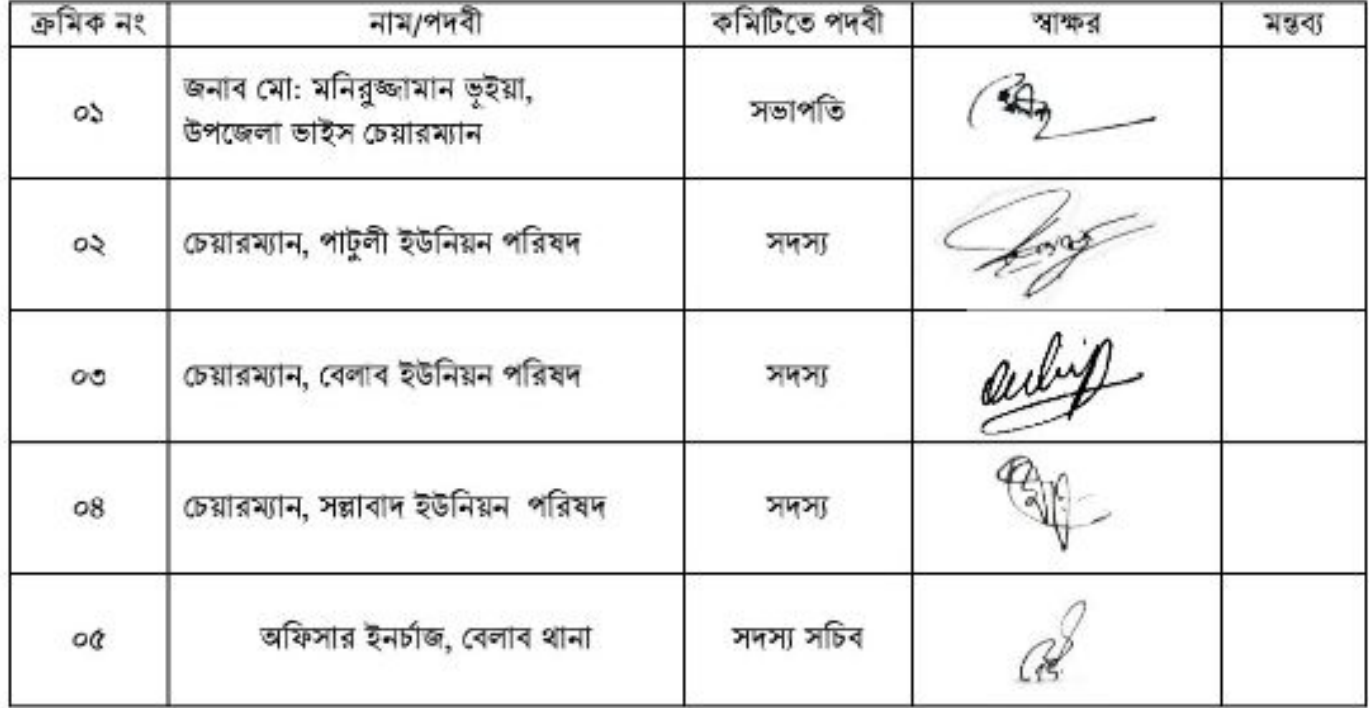 ক্রমিক নং নাম/পদবী কমিটিতে পদবী স্বাক্ষর মন্তব্য
০১ জনাব মো: মনিরুজ্জামান ভূইয়া, সভাপতি
উপজেলা ভাইস চেয়ারম্যান
০২ চেয়ারম্যান, পাটুলী ইউনিয়ন পরিষদ সদস্য
০৩ চেয়ারম্যান, বেলাব ইউনিয়ন পরিষদ সদস্য
০৪ চেয়ারম্যান, সল্লাবাদ ইউনিয়ন পরিষদ সদস্য
০৫ অফিসার ইনর্চাজ, বেলাব থানা সদস্য সচিব